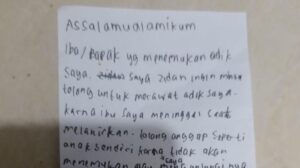 Assalamualaimkum
Iba/Bapak yg menemukan adik
saya. saya zidan ingin minta
tolong untuk merawat adik saya.
karna ibu saya meninggal saat
melahirkan. tolong anggap seperti
anak sendiri karna tidak akan
saya